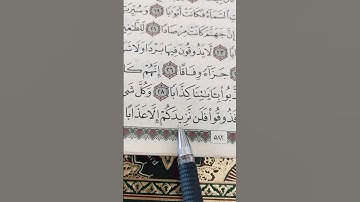 ٱلسَّمَآءُ فَكَانَتْ أَبْوَٰبًا ۝١٩ وَسُيِّرَتِ
جَهَنَّمَ كَانَتْ مِرْصَادًا ۝٢١ لِّلطَّٰغِينَ
۝٢٣ لَّا يَذُوقُونَ فِيهَا بَرْدًا وَلَا
جَزَآءً وِفَاقًا ۝٢٦ إِنَّهُمْ
بِـَٔايَٰتِنَا كِذَّابًا ۝٢٨ وَكُلَّ
فَذُوقُوا۟ فَلَن نَّزِيدَكُمْ إِلَّا عَذَابًا
٥٨٢